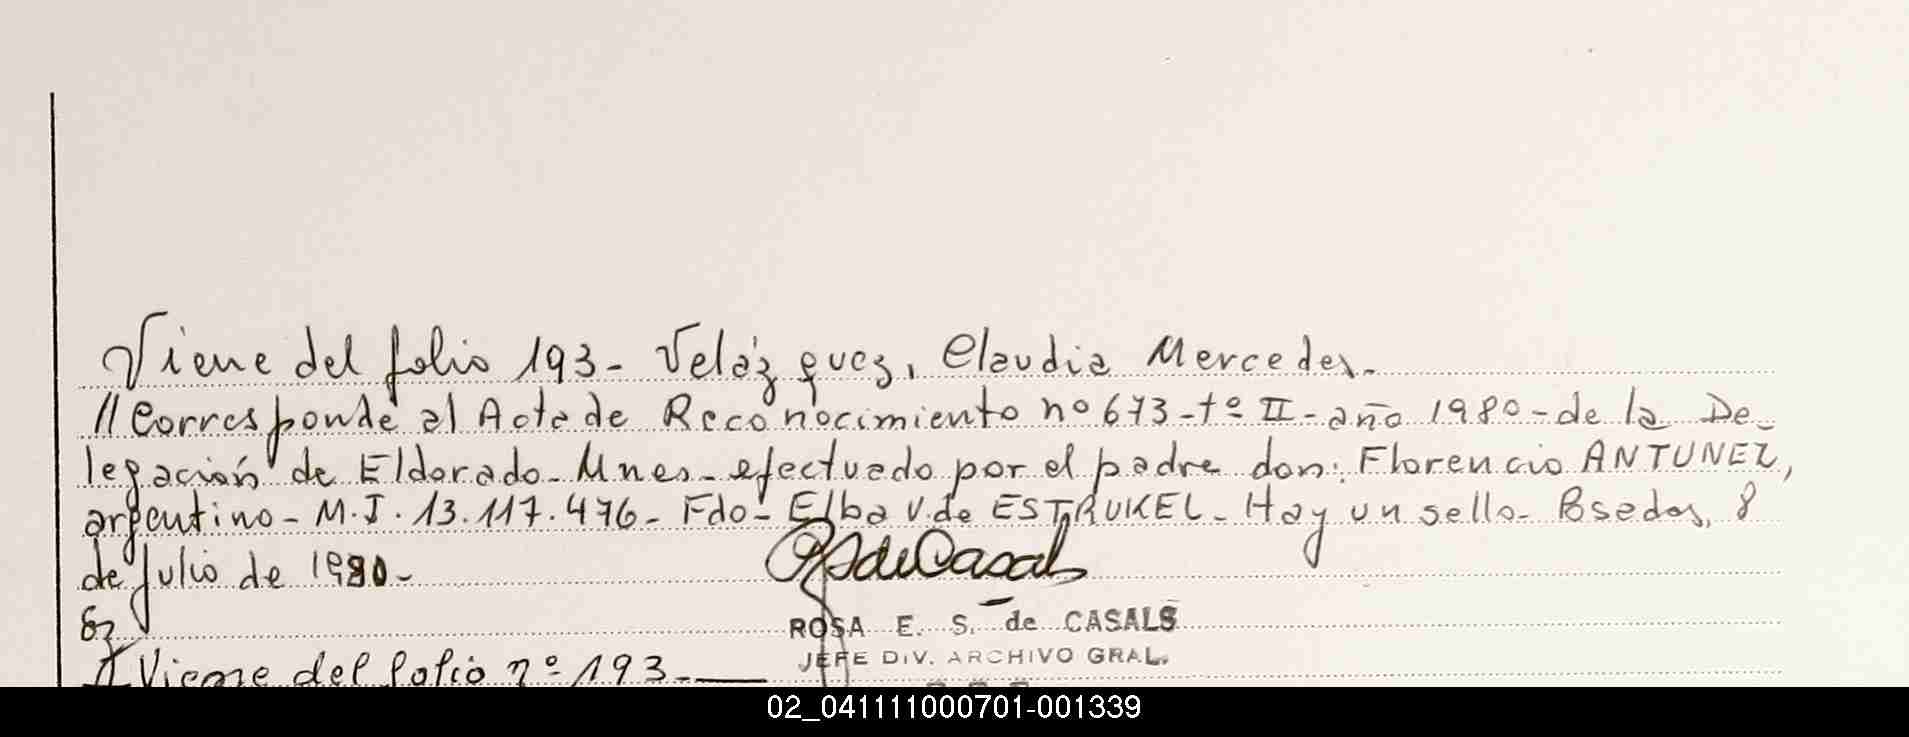 Viene del folio 193- Velázquez, Claudia Mercedes.-
//Corresponde al Acta de Reconocimiento nº 673-tº II-año 1980-de la De-
legación de Eldorado-Mnes-efectuado por el padre don: Florencio ANTUNEZ,
argentino-M.I. 13.117.476- Fdo- Elba V. de ESTRUKEL-Hay un sello-Psadas, 8
de Julio de 1980-
RS de Casals
ROSA E. S. de CASALS
JEFE DIV. ARCHIVO GRAL.
Viene del folio nº 193.-
02_041111000701-001339